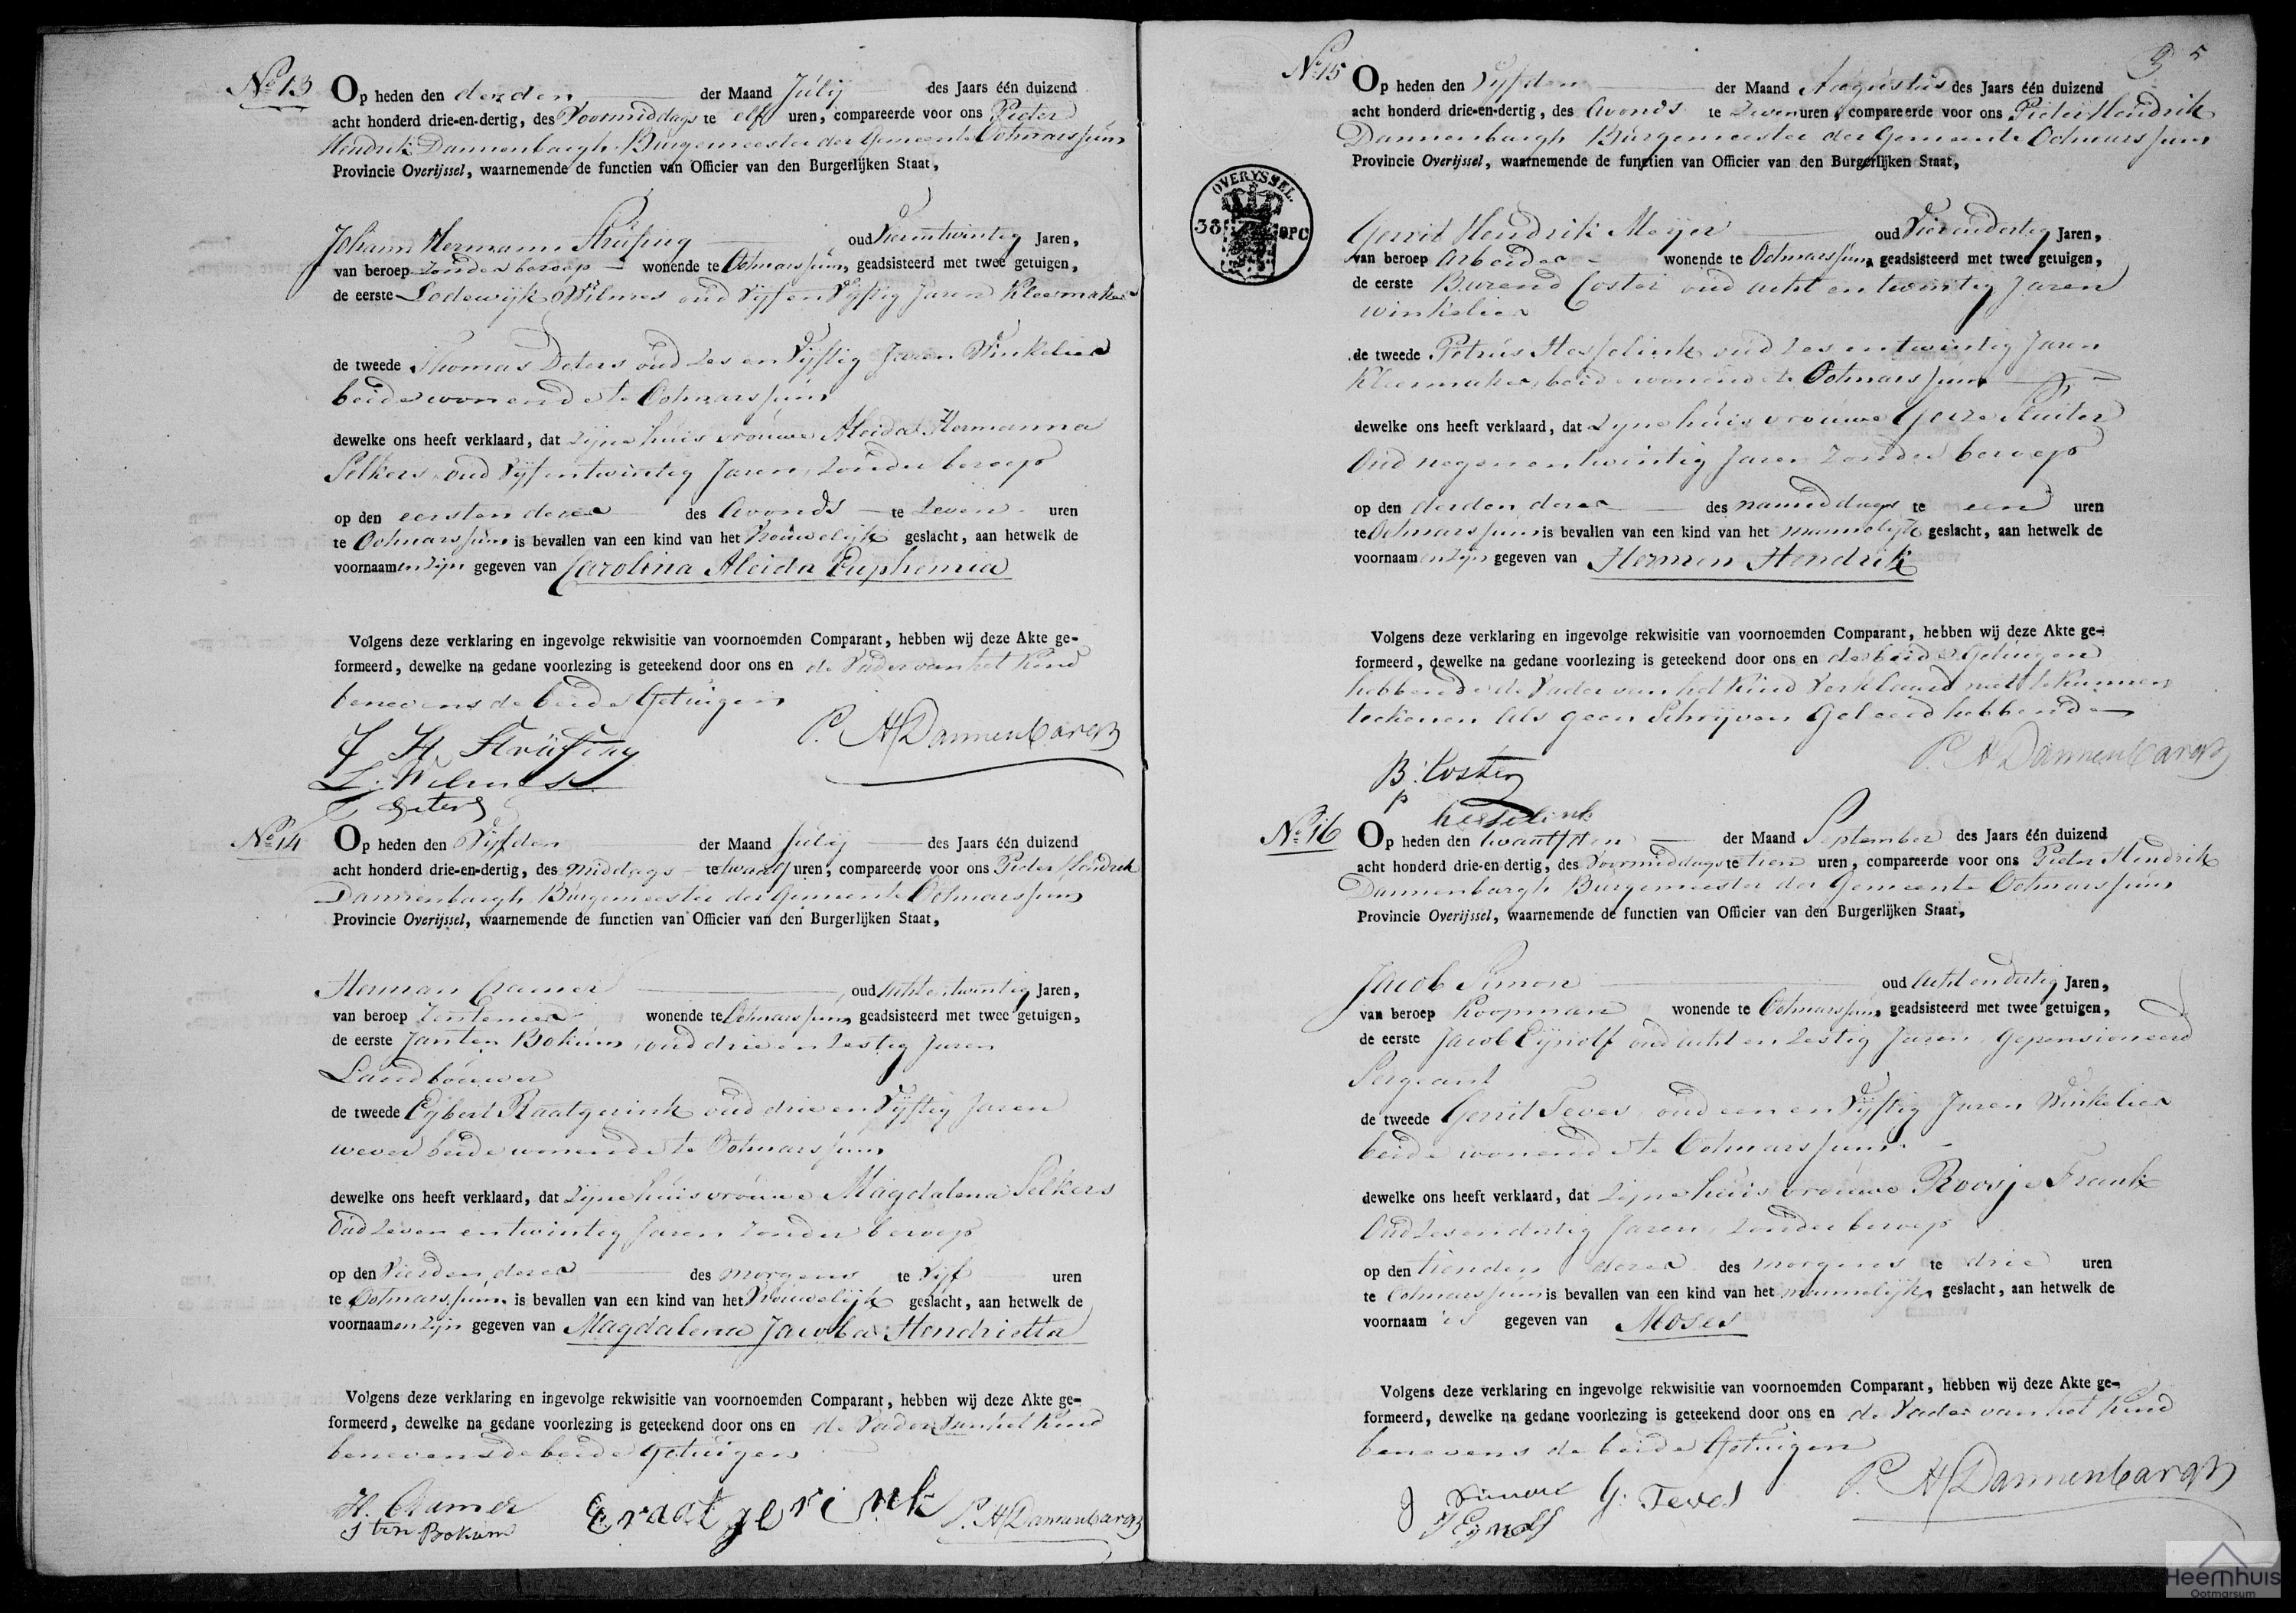 No 13
Op heden den derden der Maand Julij des Jaars één duizend
acht honderd drie-en-dertig, des Voormiddags te elf uren, compareerde voor ons Pieter
Hendrik Dannenbargh Burgemeester der Gemeente Ootmarssum
Provincie Overijssel, waarnemende de functien van Officier van den Burgerlijken Staat,
Johann Hermann Strüfing oud Vierentwintig Jaren,
van beroep zonder beroep wonende te Ootmarssum, geadsisteerd met twee getuigen,
de eerste Lodewijk Wilmes oud Vijf en Vijftig Jaren Kleermaker
de tweede Thomas Deters oud Zes en Vijftig Jaren Winkelier
beide wonende te Ootmarssum
dewelke ons heeft verklaard, dat zijne huisvrouwe Aleida Hermanna
Selkers oud Vijfentwintig Jaren, zonder beroep
op den eersten dezer des Avonds te Zeven uren
te Ootmarssum is bevallen van een kind van het Vrouwelijk geslacht, aan hetwelk de
voornaamen zijn gegeven van Carolina Aleida Euphemia
Volgens deze verklaring en ingevolge rekwisitie van voornoemden Comparant, hebben wij deze Akte ge-
formeerd, dewelke na gedane voorlezing is geteekend door ons en de Vader van het Kind
benevens de beide Getuigen
J H Strüfing P. H Dannenbargh
L. Wilmes
T Deters
No 14
Op heden den Vijfden der Maand Julij des Jaars één duizend
acht honderd drie-en-dertig, des middags te twaalf uren, compareerde voor ons Pieter Hendrik
Dannenbargh Burgemeester der Gemeente Ootmarssum
Provincie Overijssel, waarnemende de functien van Officier van den Burgerlijken Staat,
Herman Cramer oud Achtentwintig Jaren,
van beroep wonende te Ootmarssum, geadsisteerd met twee getuigen,
de eerste Jan ten Bokum, oud drie en Zestig Jaren
Landbouwer
de tweede Egbert Raatgerink oud drie en Vijftig Jaren
wever beide wonende te Ootmarssum
dewelke ons heeft verklaard, dat zijne huisvrouwe Magdalena Selkers
Oud Zeven en twintig Jaren zonder beroep
op den Vierden dezer des morgens te Vijf uren
te Ootmarssum is bevallen van een kind van het Vrouwelijk geslacht, aan hetwelk de
voornaamen zijn gegeven van Magdalena Jacoba Hendrietta
Volgens deze verklaring en ingevolge rekwisitie van voornoemden Comparant, hebben wij deze Akte ge-
formeerd, dewelke na gedane voorlezing is geteekend door ons en de Vader van het Kind
benevens de beide Getuigen
H. Cramer E raatgerink P. H Dannenbargh
J ten Bokum
5
No 15
Op heden den Vijfden der Maand Augustus des Jaars één duizend
acht honderd drie-en-dertig, des Avonds te Zeven uren, compareerde voor ons Pieter Hendrik
Dannenbargh Burgemeester der Gemeente Ootmarssum
Provincie Overijssel, waarnemende de functien van Officier van den Burgerlijken Staat,
OVERYSSEL
38 OPC
Gerrit Hendrik Meijer oud Vierendertig Jaren,
van beroep Arbeider wonende te Ootmarssum, geadsisteerd met twee getuigen,
de eerste Barend Coster oud acht en twintig Jaren
winkelier
de tweede Petrus Hesselink oud Zes en twintig Jaren
Kleermaker, beide wonende te Ootmarssum
dewelke ons heeft verklaard, dat Zijne huisvrouwe Geeze Sluiter
Oud negen en twintig Jaren Zonder beroep
op den derden dezer des namiddags te een uren
te Ootmarssum is bevallen van een kind van het mannelijk geslacht, aan hetwelk de
voornaamen zijn gegeven van Hermen Hendrik
Volgens deze verklaring en ingevolge rekwisitie van voornoemden Comparant, hebben wij deze Akte ge-
formeerd, dewelke na gedane voorlezing is geteekend door ons en de beide Getuigen
hebbende de Vader van het Kind Verklaard niet te kunnen
teekenen als geen Schrijven Geleerd hebbende
P. H Dannenbargh
B: Coster
P
hesselink
No 16
Op heden den twaalfden der Maand September des Jaars één duizend
acht honderd drie-en dertig, des Voormiddags te tien uren, compareerde voor ons Pieter Hendrik
Dannenbargh Burgemeester der Gemeente Ootmarssum
Provincie Overijssel, waarnemende de functien van Officier van den Burgerlijken Staat,
Jacob Simon oud Acht en dertig Jaren,
van beroep Koopman wonende te Ootmarssum, geadsisteerd met twee getuigen,
de eerste Jacob Eijnolf oud acht en Zestig Jaren, Gepensioneerd
Sergeant
de tweede Gerrit Teves, oud een en Vijftig Jaren Winkelier
beide wonende te Ootmarssum.
dewelke ons heeft verklaard, dat Zijne huisvrouwe Roosje Frank
Oud Zesendertig Jaren, zonder beroep
op den tienden dezer des morgens te drie uren
te Ootmarssum is bevallen van een kind van het mannelijk, geslacht, aan hetwelk de
voornaam is gegeven van Moses
Volgens deze verklaring en ingevolge rekwisitie van voornoemden Comparant, hebben wij deze Akte ge-
formeerd, dewelke na gedane voorlezing is geteekend door ons en de Vader van het Kind
benevens de beide Getuigen
J Simon G. Teves P. H Dannenbargh
J Eijnolf
Heemhuis
Ootmarsum